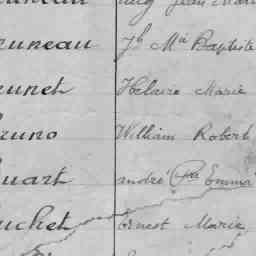 runeau Jh Mie Baptiste
runet Helaire Marie
runo William Robert
uart andré Pre Emma
uchet Ernest Marie